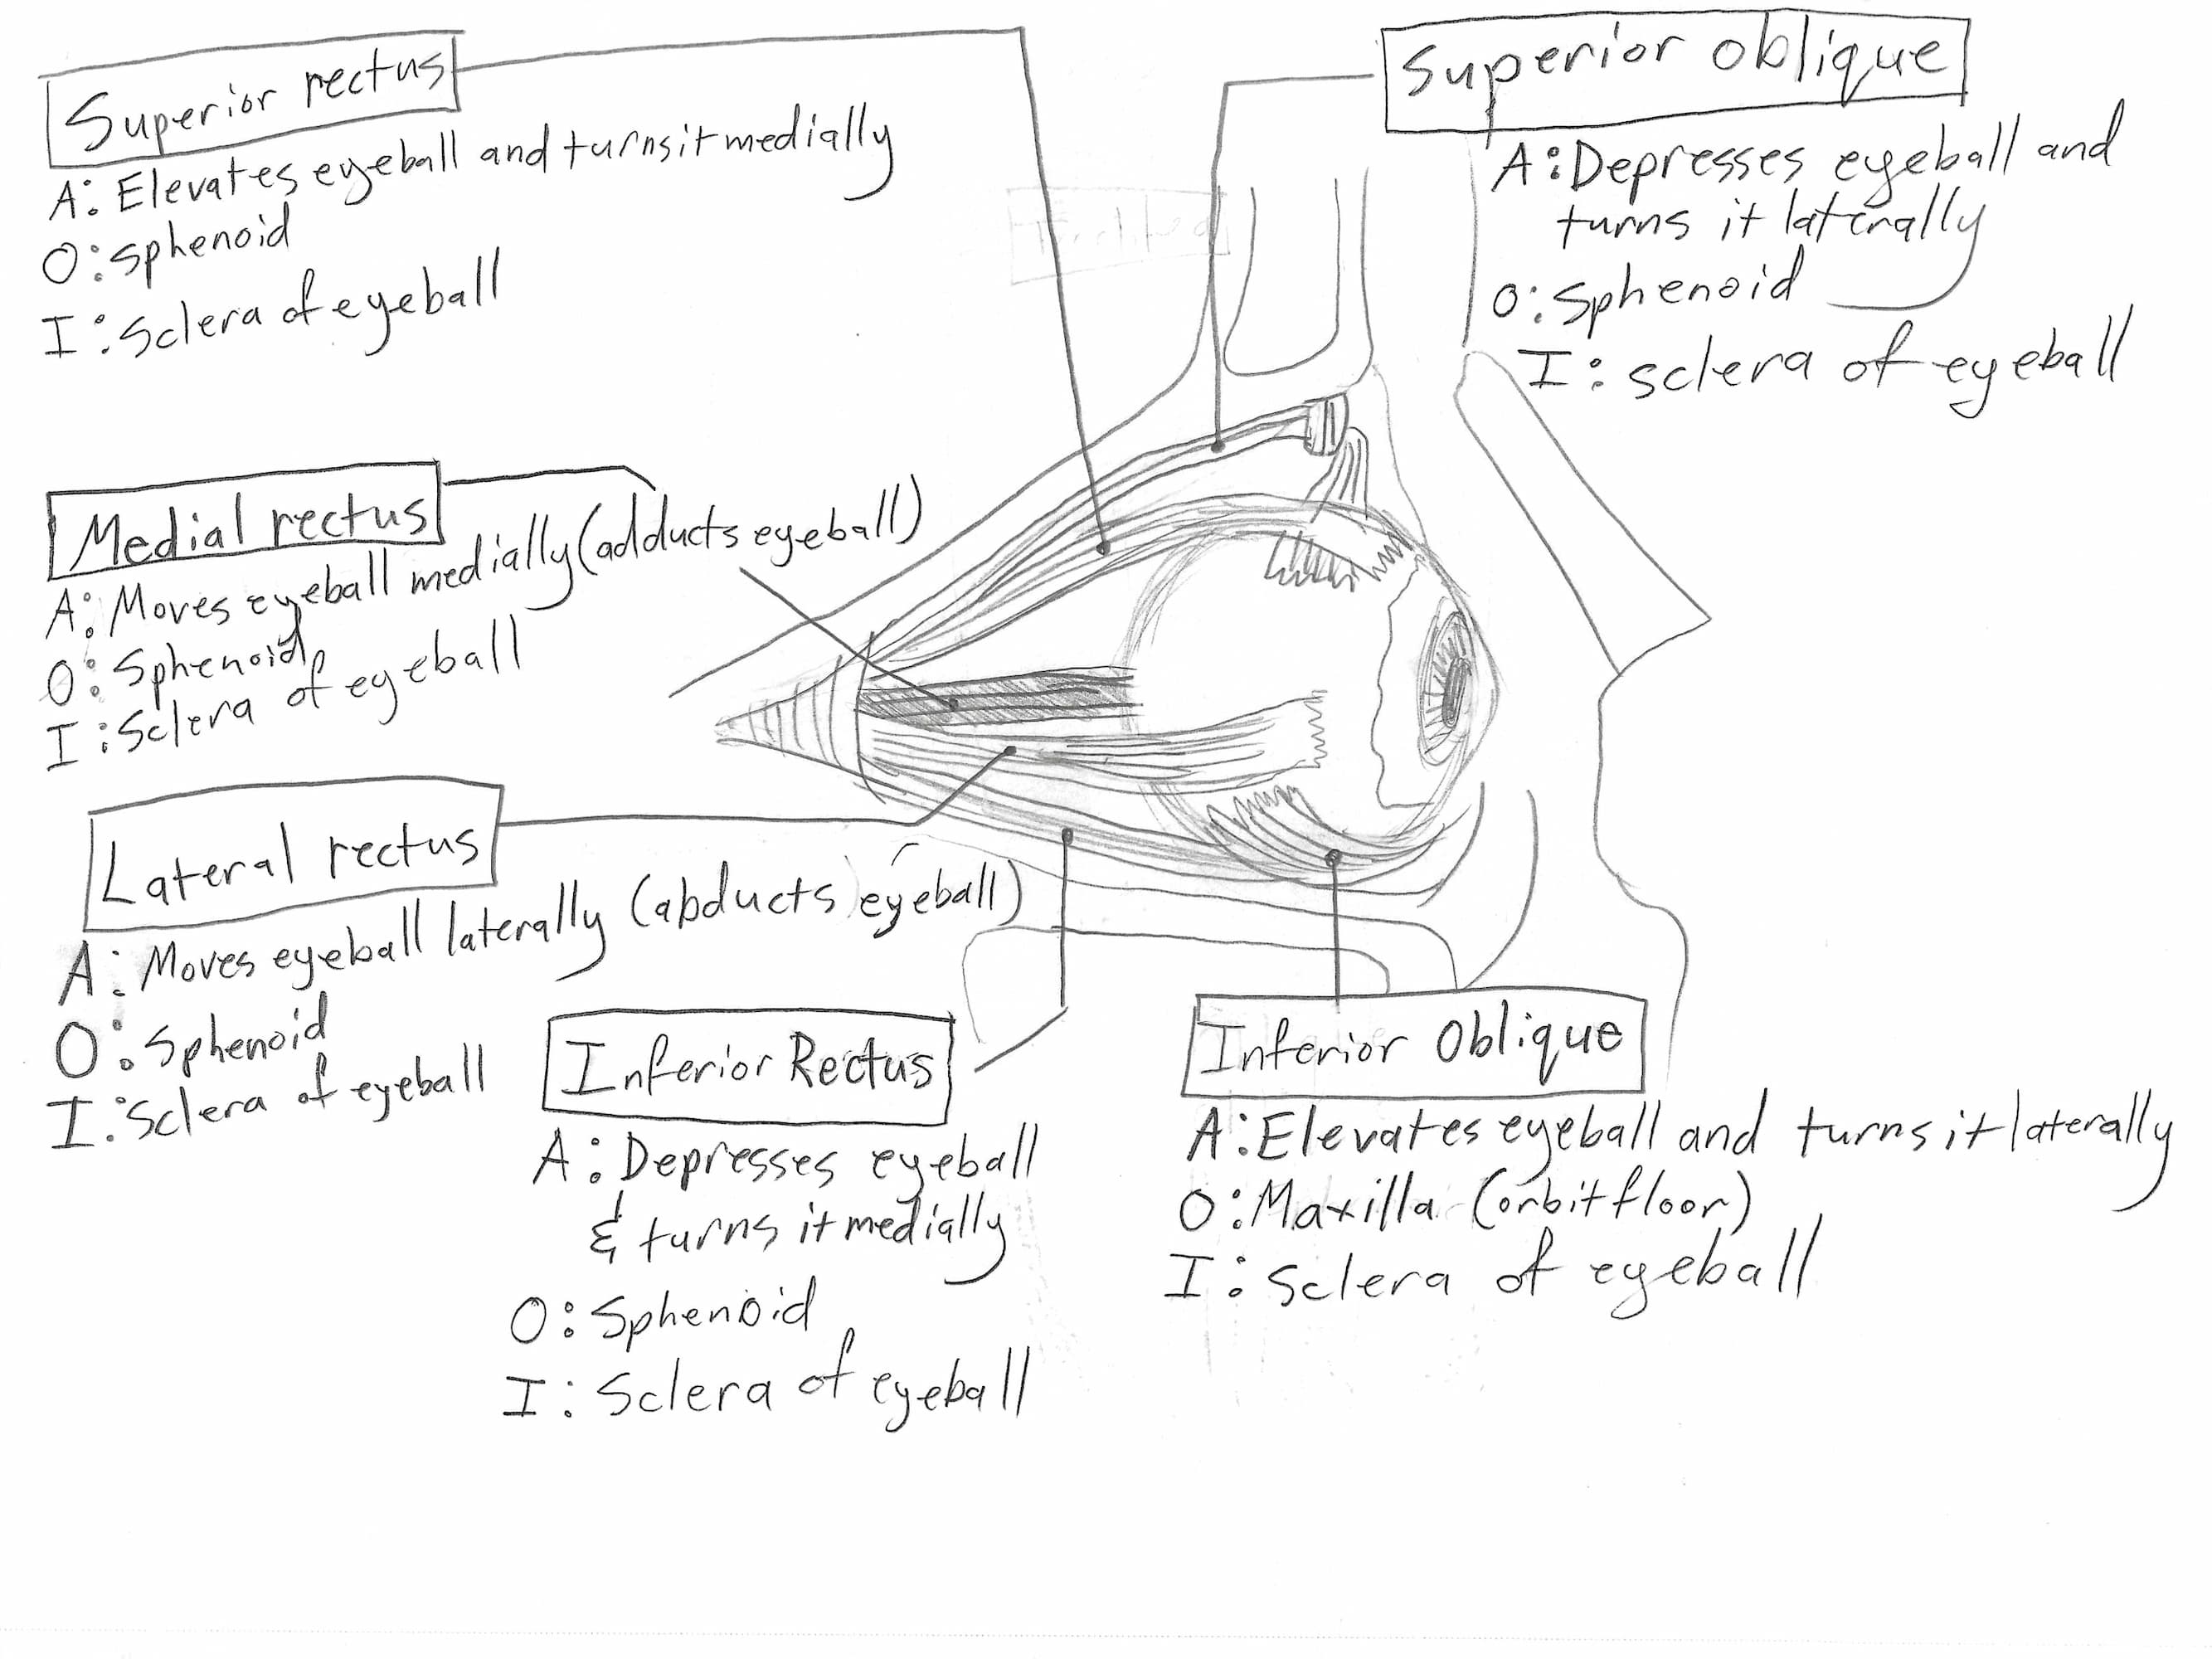 Superior rectus
A: Elevates eyeball and turns it medially
O: sphenoid
I: sclera of eyeball
Superior oblique
A: Depresses eyeball and
turns it laterally
O: Sphenoid
I: sclera of eyeball
Medial rectus
A: Moves eyeball medially (adducts eyeball)
O: Sphenoid
I: Sclera of eyeball
Lateral rectus
A: Moves eyeball laterally (abducts eyeball)
O: Sphenoid
I: Sclera of eyeball
Inferior Rectus
A: Depresses eyeball
& turns it medially
O: Sphenoid
I: Sclera of eyeball
Inferior Oblique
A: Elevates eyeball and turns it laterally
O: Maxilla (orbit floor)
I: Sclera of eyeball